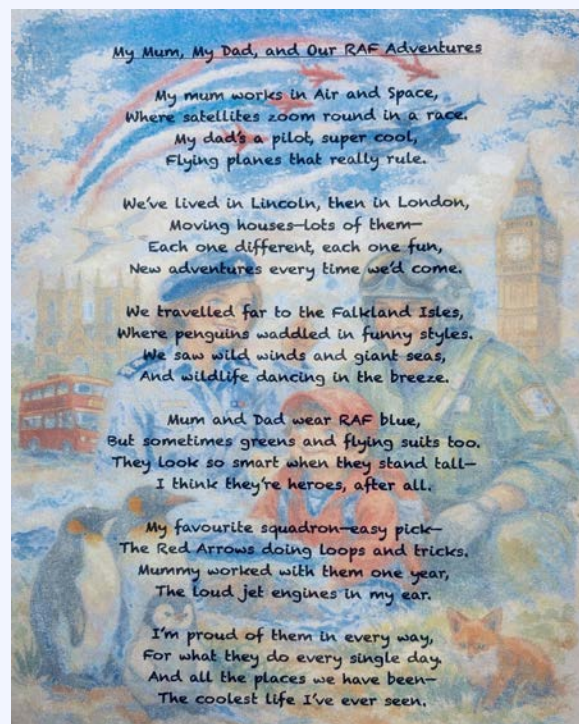 My Mum, My Dad, and Our RAF Adventures
My mum works in Air and Space,
Where satellites zoom round in a race.
My dad's a pilot, super cool,
Flying planes that really rule.
We've lived in Lincoln, then in London,
Moving houses—lots of them—
Each one different, each one fun,
New adventures every time we'd come.
We travelled far to the Falkland Isles,
Where penguins waddled in funny styles.
We saw wild winds and giant seas,
And wildlife dancing in the breeze.
Mum and Dad wear RAF blue,
But sometimes greens and flying suits too.
They look so smart when they stand tall—
I think they're heroes, after all.
My favourite squadron—easy pick—
The Red Arrows doing loops and tricks.
Mummy worked with them one year,
The loud jet engines in my ear.
I'm proud of them in every way,
For what they do every single day.
And all the places we have been—
The coolest life I've ever seen.